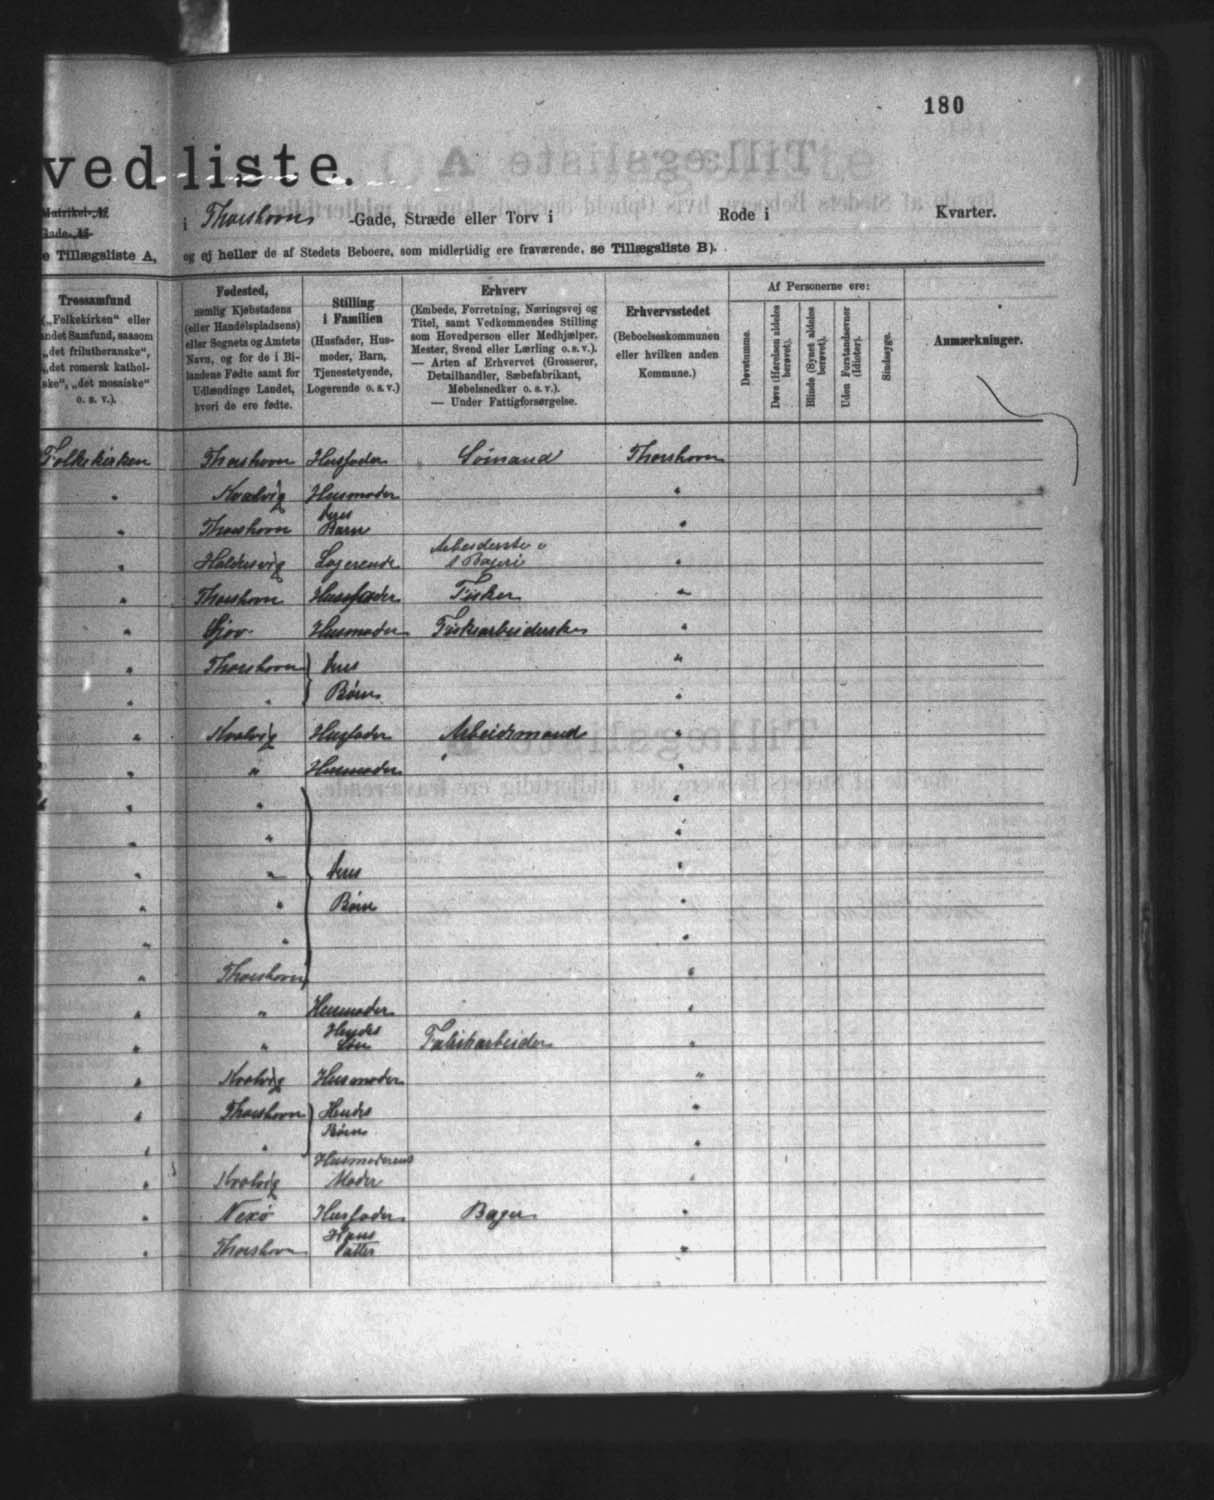 180
vedliste.
Matrikel-№
Gade-№
i Thorshavn -Gade, Stræde eller Torv i Rode i Kvarter.
e Tillægsliste A, og ej heller de af Stedets Beboere, som midlertidig ere fraværende, se Tillægsliste B).
Trossamfund
(„Folkekirken“ eller
andet Samfund, saasom
„det frilutheranske“,
„det romersk kathol-
ske“, „det mosaiske“
o. s. v.).
Fødested,
nemlig Kjøbstadens
(eller Handelspladsens)
eller Sognets og Amtets
Navn, og for de i Bi-
landene Fødte samt for
Udlændinge Landet,
hvori de ere fødte.
Stilling
i Familien
(Husfader, Hus-
moder, Barn,
Tjenestetyende,
Logerende o. s. v.)
Erhverv
(Embede, Forretning, Næringsvej og
Titel, samt Vedkommendes Stilling
som Hovedperson eller Medhjælper,
Mester, Svend eller Lærling o. s. v.).
— Arten af Erhvervet (Grosserer,
Detailhandler, Sæbefabrikant,
Møbelsnedker o. s. v.).
— Under Fattigforsørgelse.
Erhvervsstedet
(Beboelseskommunen
eller hvilken anden
Kommune.)
Af Personerne ere:
Døvstumme.
Døve (Hørelsen aldeles
berøvet).
Blinde (Synet aldeles
berøvet).
Uden Forstandsevner
(Idioter).
Sindssyge.
Anmærkninger.
Folkekirken Thorshavn Husfader Sømand Thorshavn
" Kvalvig Husmoder "
" Thorshavn deres Barn "
" Haldersvig Logerende Arbeiderske i Bageri "
" Thorshavn Husfader Fisker "
" Gjov Husmoder Fiskearbeiderske "
" Thorshavn deres "
" " Børn "
" Kvalvig Husfader Arbeidsmand "
" " Husmoder "
" " "
" " "
" " deres "
" " Børn "
" " "
" Thorshavn "
" " Husmoder "
" " Hendes Søn Fabrikarbeider "
" Kvalvig Husmoder "
" Thorshavn Hendes "
" " Børn "
" Kvalvig Husmoderens Moder "
" Nexø Husfader Bager "
" Thorshavn Hans Datter "